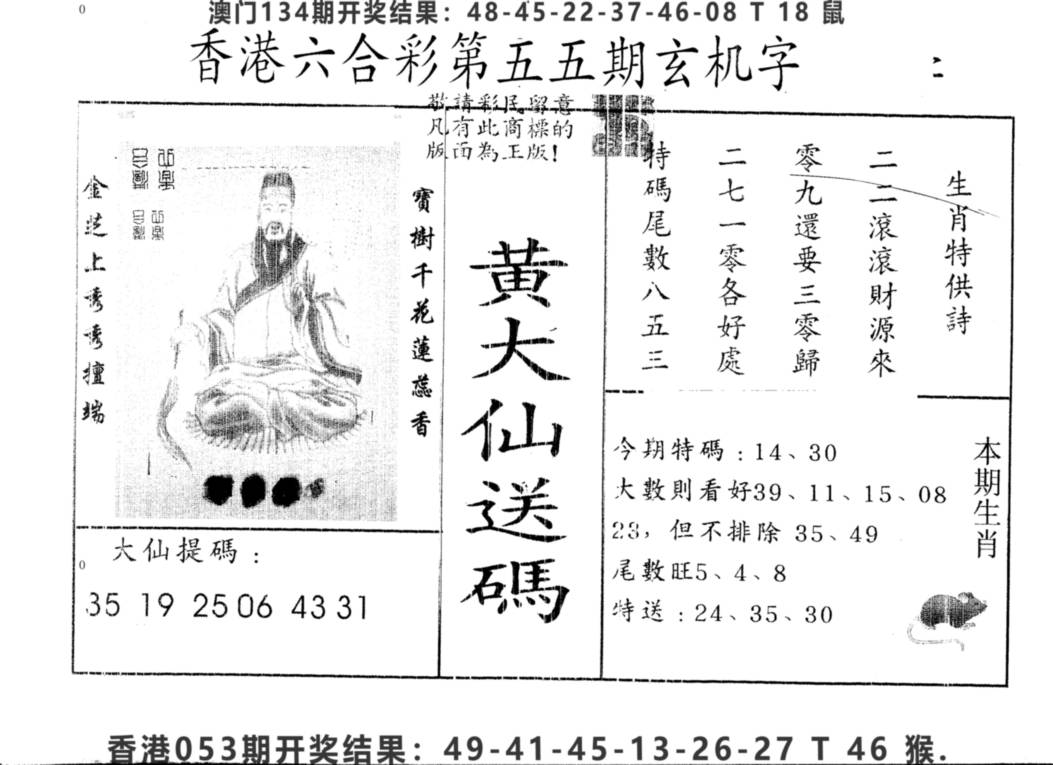 澳门134期开奖结果：48-45-22-37-46-08 T 18 鼠
香港六合彩第五五期玄机字
敬請彩民留意
凡有此商標的
版面為正版！
生肖特供詩
二二滾滾財源來
零九還要三零歸
二七一零各好處
特碼尾數八五三
寶樹千花蓮蕊香
金芝上秀秀擅端
黄大仙送碼
大仙提碼：
35 19 25 06 43 31
本期生肖
今期特碼：14、30
大數則看好39、11、15、08
23，但不排除 35、49
尾數旺5、4、8
特送：24、35、30
香港053期开奖结果：49-41-45-13-26-27 T 46 猴.